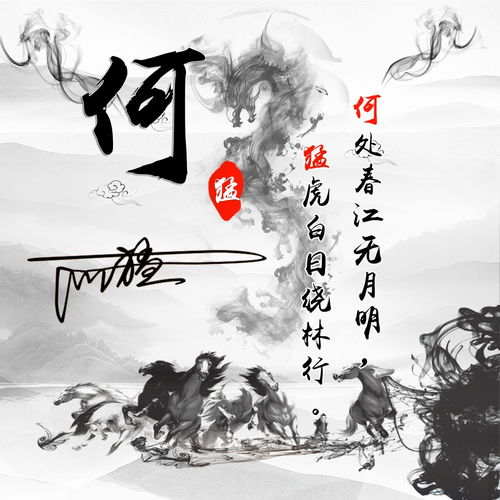 何
猛
何处春江无月明，
猛虎白日绕林行。